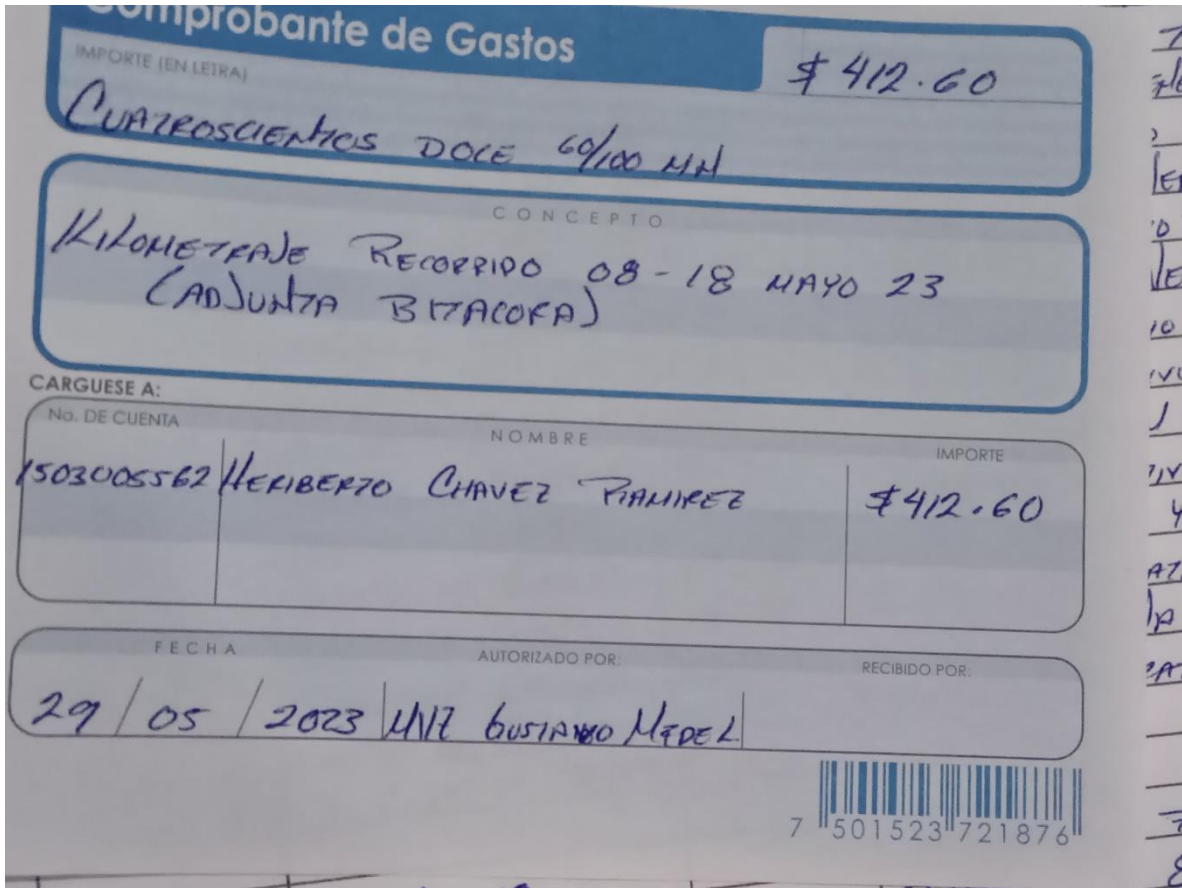 Comprobante de Gastos
$ 412.60
IMPORTE (EN LETRA)
CUATROSCIENTOS DOCE 60/100 MN
CONCEPTO
KILOMETRAJE RECORRIDO 08-18 MAYO 23
(ADJUNTA BITACORA)
CARGUESE A:
No. DE CUENTA NOMBRE IMPORTE
1503005562 HERIBERTO CHAVEZ RAMIREZ $412.60
FECHA AUTORIZADO POR: RECIBIDO POR:
29/05/2023 MVZ GUSTAVO MEDEL
7 501523 721876